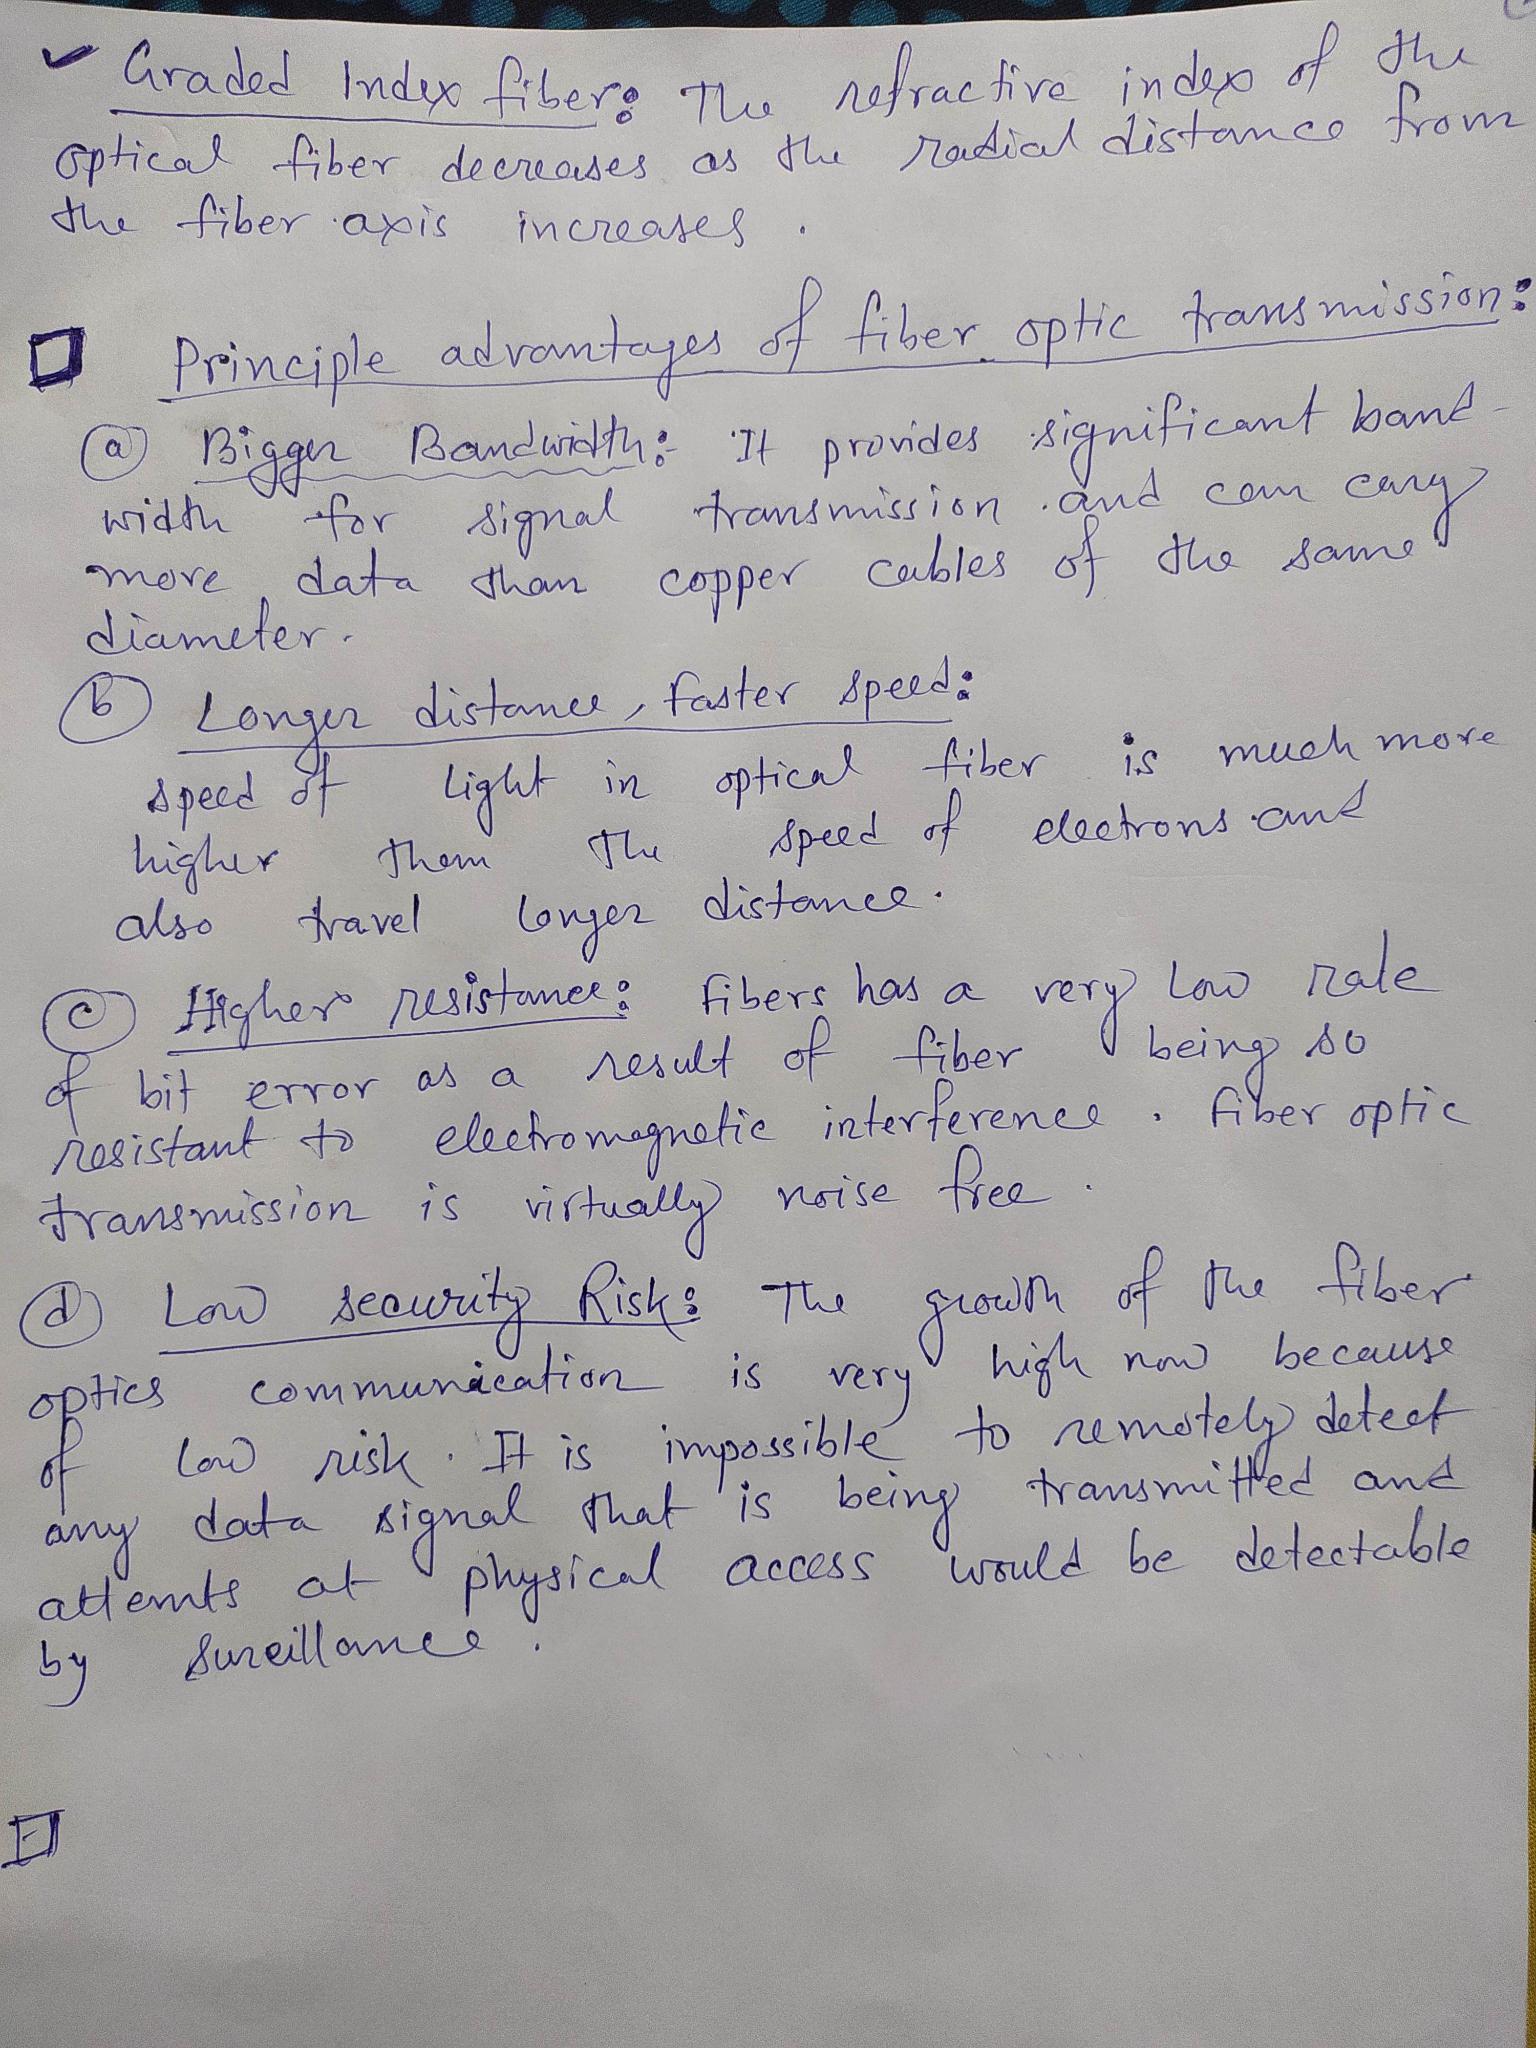 ✓ Graded Index fiber: The refractive index of the
optical fiber decreases as the radial distance from
the fiber axis increases.
Principle advantages of fiber optic transmission:
(a) Bigger Bandwidth:- It provides significant band-
width for signal transmission and can cary
more data than copper cables of the same
diameter.
(b) Longer distance, faster speed:
speed of light in optical fiber is much more
higher than the speed of electrons and
also travel longer distance.
(c) Higher resistance: Fibers has a very low rate
of bit error as a result of fiber being so
resistant to electromagnetic interference. Fiber optic
transmission is virtually noise free.
(d) Low security Risk: The growth of the fiber
optics communication is very high now because
of low risk. It is impossible to remotely detect
any data signal that is being transmitted and
attemts at physical access would be detectable
by sureillance.